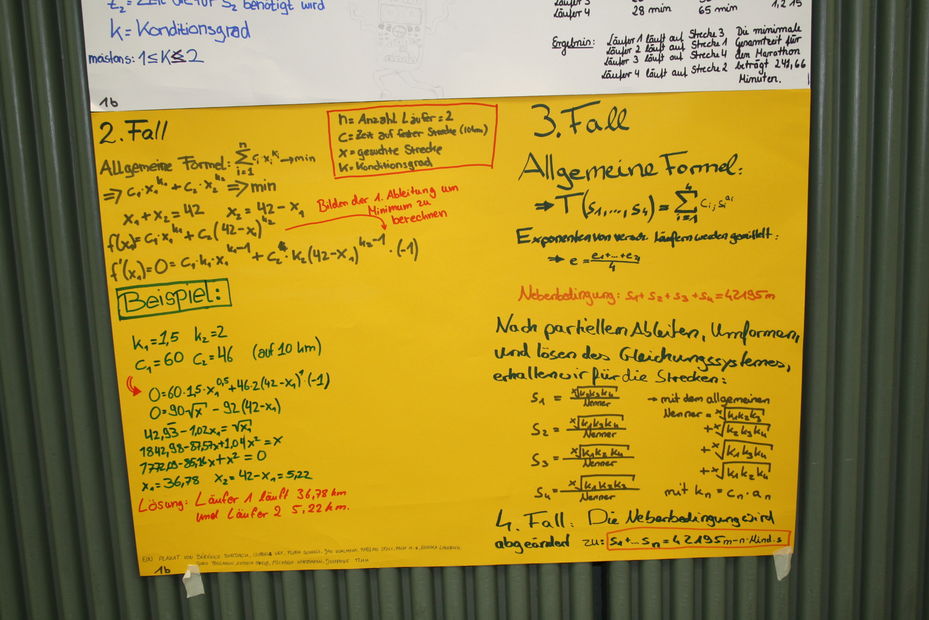 t₂ = Zeit die für S₂ benötigt wird
k = Konditionsgrad
meistens: 1 ≤ K ≤ 2
1b
Läufer 3
Läufer 4 28 min 65 min 1,215
Ergebnis: Läufer 1 läuft auf Strecke 3
Läufer 2 läuft auf Strecke 1
Läufer 3 läuft auf Strecke 4
Läufer 4 läuft auf Strecke 2
Die minimale
Gesamtzeit für
den Marathon
beträgt 241,66
Minuten.
2. Fall
n = Anzahl Läufer = 2
c = Zeit auf fester Strecke (10km)
x = gesuchte Strecke
K = Konditionsgrad
Allgemeine Formel: Σ i=1 n cᵢ xᵢ^kᵢ → min
⇒ c₁·x₁^k₁ + c₂·x₂^k₂ ⇒ min
x₁ + x₂ = 42 x₂ = 42 - x₁
Bilden der 1. Ableitung um
Minimum zu
berechnen
f(x₁) = c₁·x₁^k₁ + c₂(42-x₁)^k₂
f'(x₁) = 0 = c₁·k₁·x₁^k₁-1 + c₂·k₂(42-x₁)^k₂-1 · (-1)
Beispiel:
k₁ = 1,5 k₂ = 2
c₁ = 60 c₂ = 46 (auf 10 km)
0 = 60·1,5·x₁^0,5 + 46·2(42-x₁)^1 (-1)
0 = 90√x - 92(42-x₁)
42,93 - 1,02x₁ = √x₁
1842,98 - 87,57x + 1,04x² = x
x + x² = 0
x₁ = 36,78 x₂ = 42-x₁ = 5,22
Lösung: Läufer 1 läuft 36,78 km
und Läufer 2 5,22 km.
EIN PLAKAT VON
1b
3. Fall
Allgemeine Formel:
⇒ T(s₁,...,s₄) = Σ i=1 4 cᵢ · sᵢ^aᵢ
Exponenten von versch. Läufern werden gemittelt:
⇒ e = e₁+...+e₄ / 4
Nebenbedingung: s₁ + s₂ + s₃ + s₄ = 42195m
Nach partiellem Ableiten, Umformen,
und lösen des Gleichungssystemes,
erhalten wir für die Strecken:
S₁ = ˣ√k₂k₃k₄ / Nenner → mit dem allgemeinen
Nenner = ˣ√k₁k₂k₃
S₂ = ˣ√k₁k₃k₄ / Nenner + ˣ√k₂k₃k₄
S₃ = ˣ√k₁k₂k₄ / Nenner + ˣ√k₁k₃k₄
+ ˣ√k₁k₂k₄
S₄ = ˣ√k₁k₂k₃ / Nenner mit kₙ = cₙ · aₙ
4. Fall: Die Nebenbedingung wird
abgeändert zu: s₁+...sₙ = 42195m-n·Mind.s